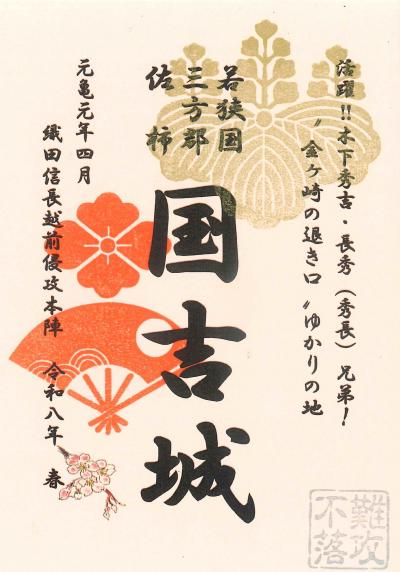 活躍!!木下秀吉・長秀(秀長)兄弟!
〝金ヶ崎の退き口〟ゆかりの地
若狭国
三方郡
佐柿
国吉城
元亀元年四月
織田信長越前侵攻本陣 令和八年 春
難攻
不落